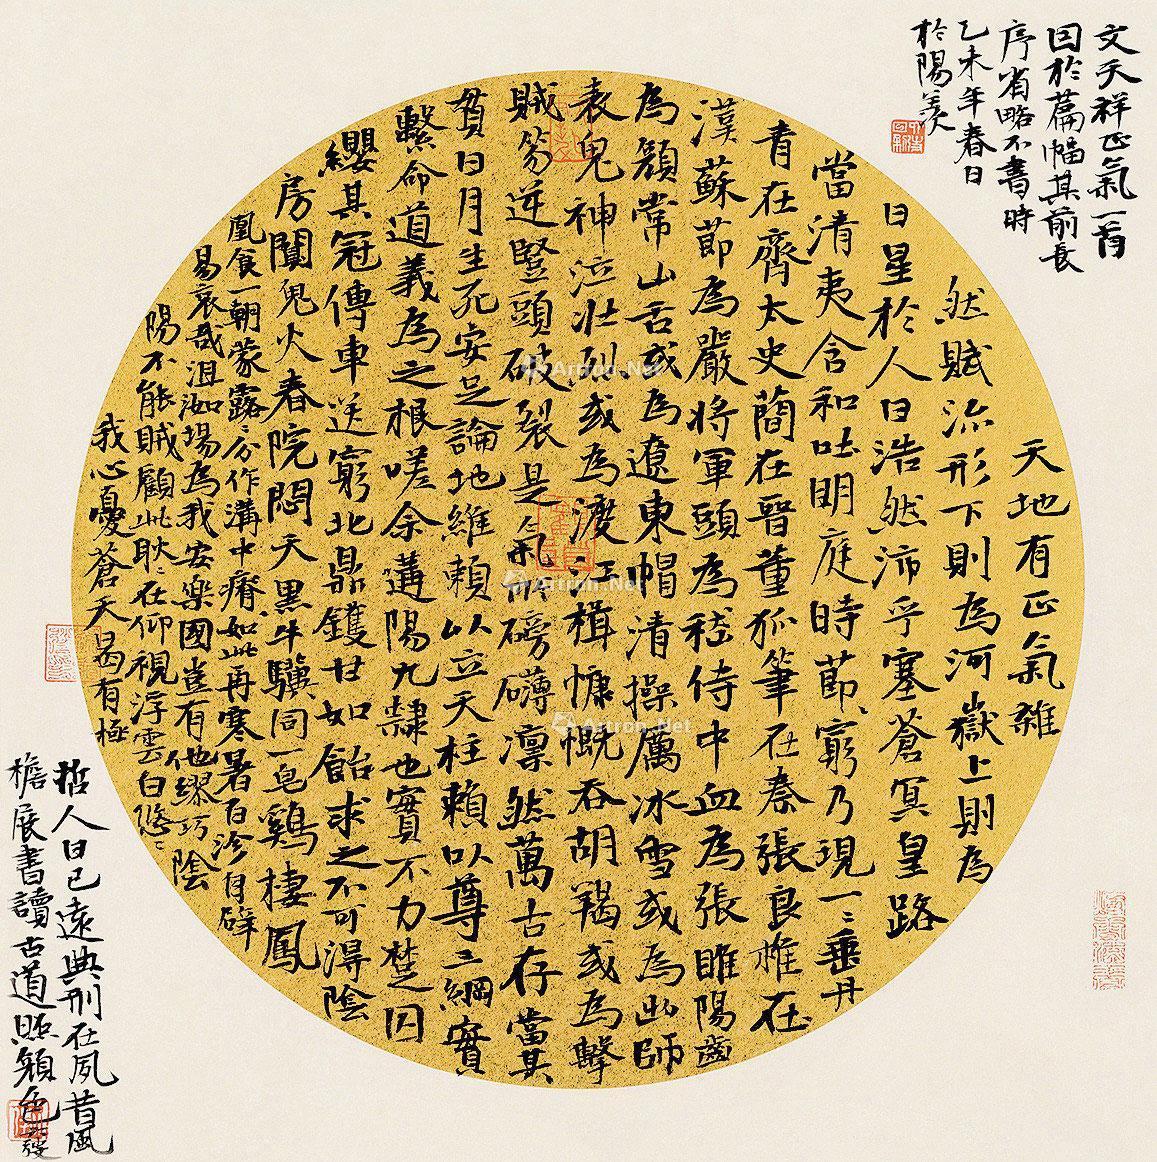 文天祥正氣一首
囙於篇幅其前長
序省略不書時
乙未年春日
於陽羨
天地有正氣雜
然賦流形下則為河嶽上則為
日星於人曰浩然沛乎塞蒼冥皇路
當清夷含和吐明庭時節窮乃現一〻垂丹
青在齊太史簡在晉董狐筆在秦張良椎在
漢蘇節為嚴將軍頭為嵇侍中血為張睢陽齒
為顏常山舌或為遼東帽清操厲冰雪或為出師
表鬼神泣壯烈或為渡江楫慷慨吞胡羯或為擊
賊笏逆豎頭破裂是氣所磅礴凜然萬古存當其
貫日月生死安足論地維賴以立天柱賴以尊三綱實
繫命道義為之根嗟余遘陽九隸也實不力楚囚
纓其冠傳車送窮北鼎鑊甘如飴求之不可得陰
房闐鬼火春院悶天黑牛驥同一皂鷄棲鳳
凰食一朝蒙露〻分作溝中瘠如此再寒暑百沴自辟
易哀哉沮洳場為我安樂國豈有他繆巧陰
陽不能賊顧此耿〻在仰視浮雲白悠〻
我心憂蒼天曷有極
哲人日已遠典刑在夙昔風
檐展書讀古道照顏色
Artron.Net
Artron.Net
Artron.Net